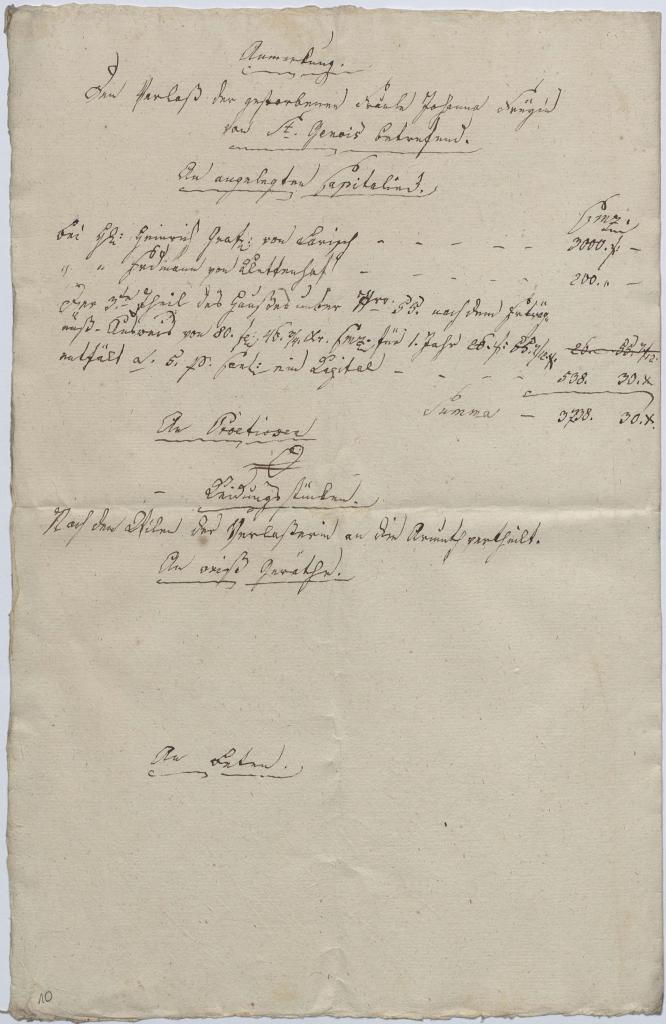 Anmerkung.
Den Verlaß der gestorbenen Fräule Johanna Freyin
von St. Genois betrefend.
An angelegten Capitalien.
Cmz.
bei H: Heinrich Graf: von Larisch - - - - - 3000. f: -
" " Erdmann von Klettenhof - - - - 200. " -
Der 3te Theil des Haußes unter Nro. 55. nach dem
Ausweis von 80. f: 46. 3/4 Xr. Cmz. für 1. Jahr 26. f: 55. 7/12 26. 55. 7/12
entfält a. 5. p: Cent: ein Capital - - - - 538. 30. x
Summa - 3738. 30. x.
An Praetiosen
Kleidungs stücken.
Nach dem Willen der Verlaßerin an die Armuth vertheilt.
An Geräthe.
An Beten.
10